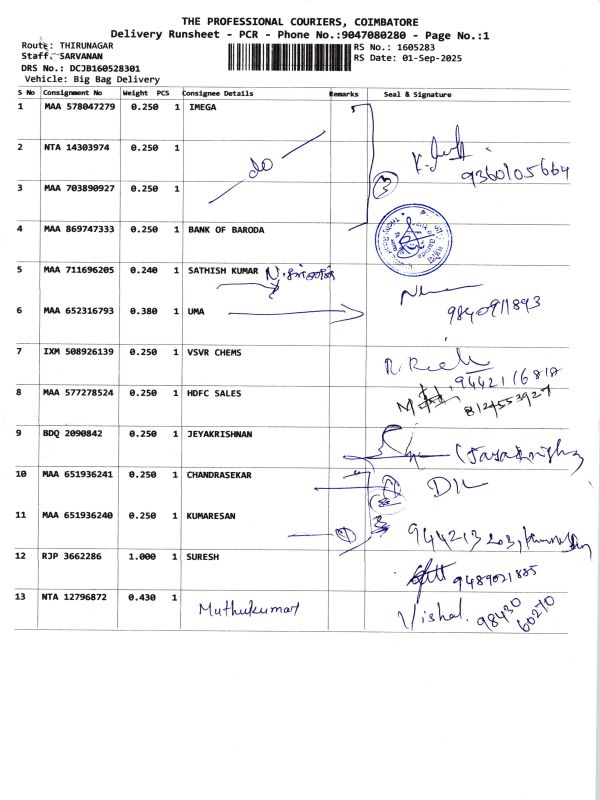 THE PROFESSIONAL COURIERS, COIMBATORE
Delivery Runsheet - PCR - Phone No.:9047080280 - Page No.:1
Route: THIRUNAGAR
RS No.: 1605283
Staff: SARVANAN
RS Date: 01-Sep-2025
DRS No.: DCJB160528301
Vehicle: Big Bag Delivery
S No Consignment No Weight PCS Consignee Details Remarks Seal & Signature
1 MAA 578047279 0.250 1 IMEGA
2 NTA 14303974 0.250 1 do
9360105664
3 MAA 703890927 0.250 1 3
4 MAA 869747333 0.250 1 BANK OF BARODA
5 MAA 711696205 0.240 1 SATHISH KUMAR
6 MAA 652316793 0.380 1 UMA 9840911893
7 IXM 508926139 0.250 1 VSVR CHEMS
9442116818
8 MAA 577278524 0.250 1 HDFC SALES 8124553927
9 BDQ 2090842 0.250 1 JEYAKRISHNAN
10 MAA 651936241 0.250 1 CHANDRASEKAR
11 MAA 651936240 0.250 1 KUMARESAN
12 RJP 3662286 1.000 1 SURESH
9489021885
13 NTA 12796872 0.430 1 Muthukumar Vishal. 98430
60270